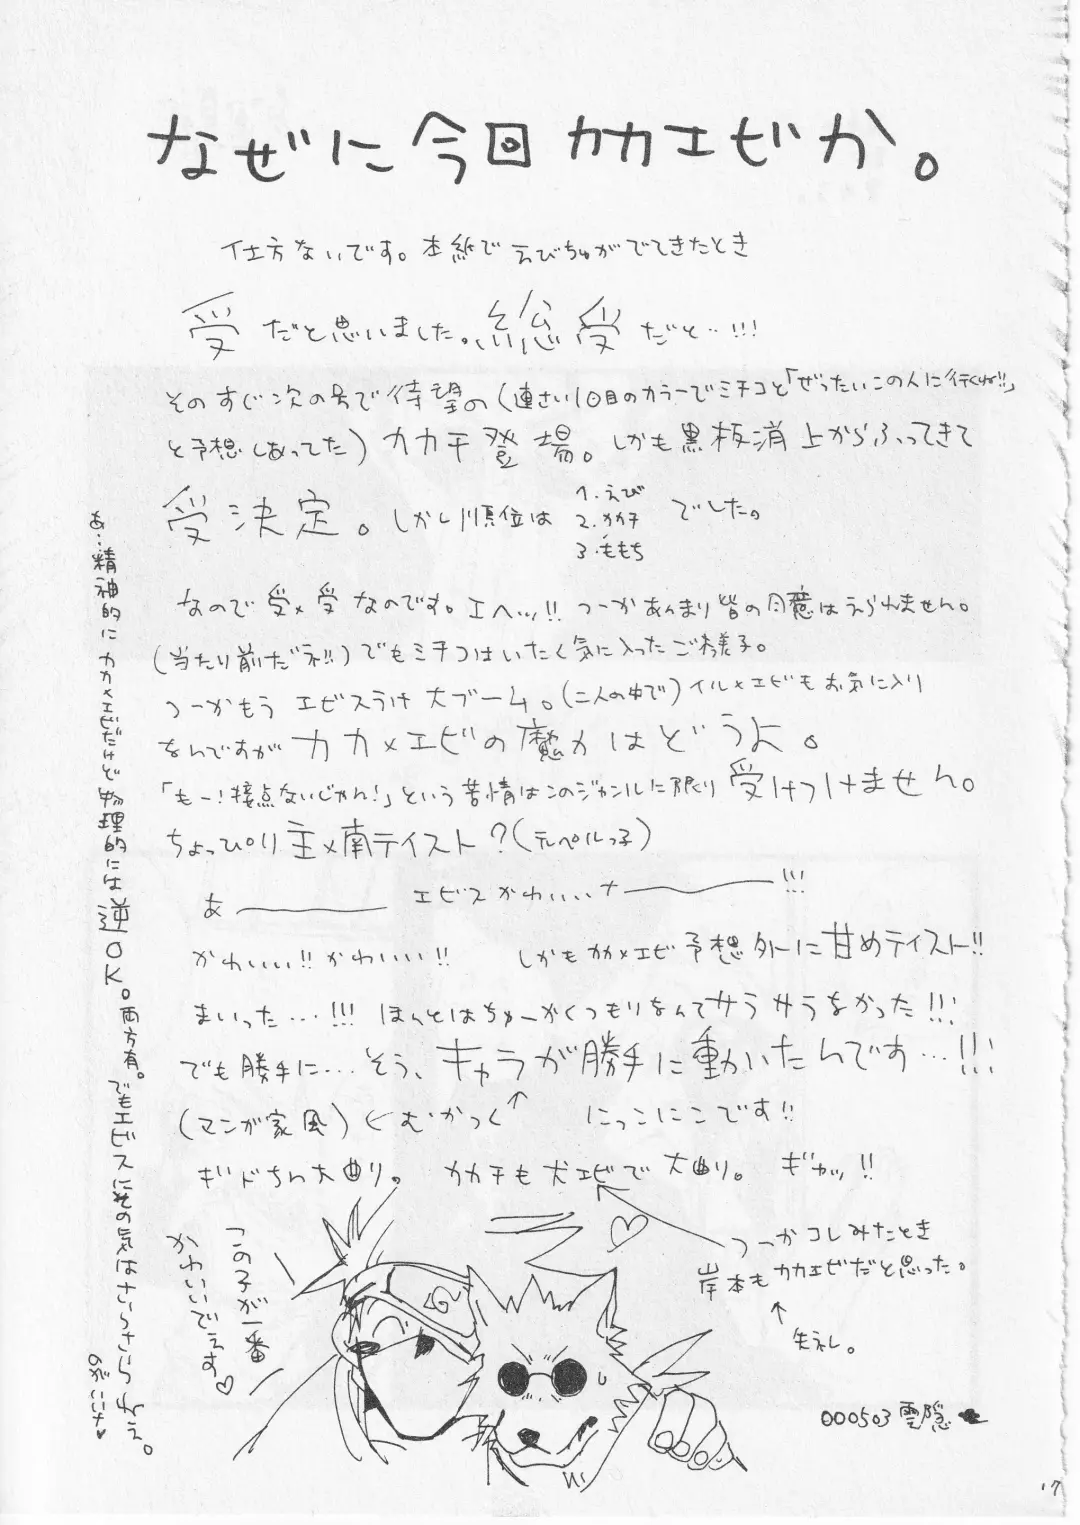 なぜに今回カカエビか。
仕方ないです。本紙でえびちゅがでてきたとき
受だと思いました。総受だと…!!!
そのすぐ次の号で待望の(連さい1回目のカラーでミチコと「ぜったいこの人に行くね!!」
と予想しあってた)カカチ登場。しかも黒板消上からふってきて
受決定。しかし順位は
1.えび
2.カカチ
3.ももち
でした。
なので受×受なのです。エヘッ!! つーかあんまり皆の同意はえられません。
(当たり前だネ!!)でもミチコはいたく気に入ったご様子。
つーかもうエビスうけ大ブーム。(二人の中で)イル×エビもお気に入り
なんですがカカ×エビの魔力はどうよ。
「もー!接点ないじゃん!」という苦情はこのジャンルに限り受けつけません。
ちょっぴり主×南テイスト?(ペルっ子)
あ――― エビスかわいいナ―――!!!
かわいい!!かわいい!! しかもカカ×エビ予想外に甘めテイスト!!
まいった…!!! ほんとはちゅーかくつもりなんてサラサラなかった!!!
でも勝手に…そう、キャラが勝手に動いたんです…!!!
(マンガ家風)←むかつく にっこにこです!!
ギドちん大曲り。 カカチも犬エビで大曲り。 ギャッ!!
つーかコレみたとき
岸本もカカエビだと思った。
失礼。
この子が一番
かわいいでぇす♡
あ…精神的にカカ×エビだけど物理的には逆OK。両方有。でもエビスにその気はさらさらねぇ。
のがいいナ♥
000503 雲隠
17